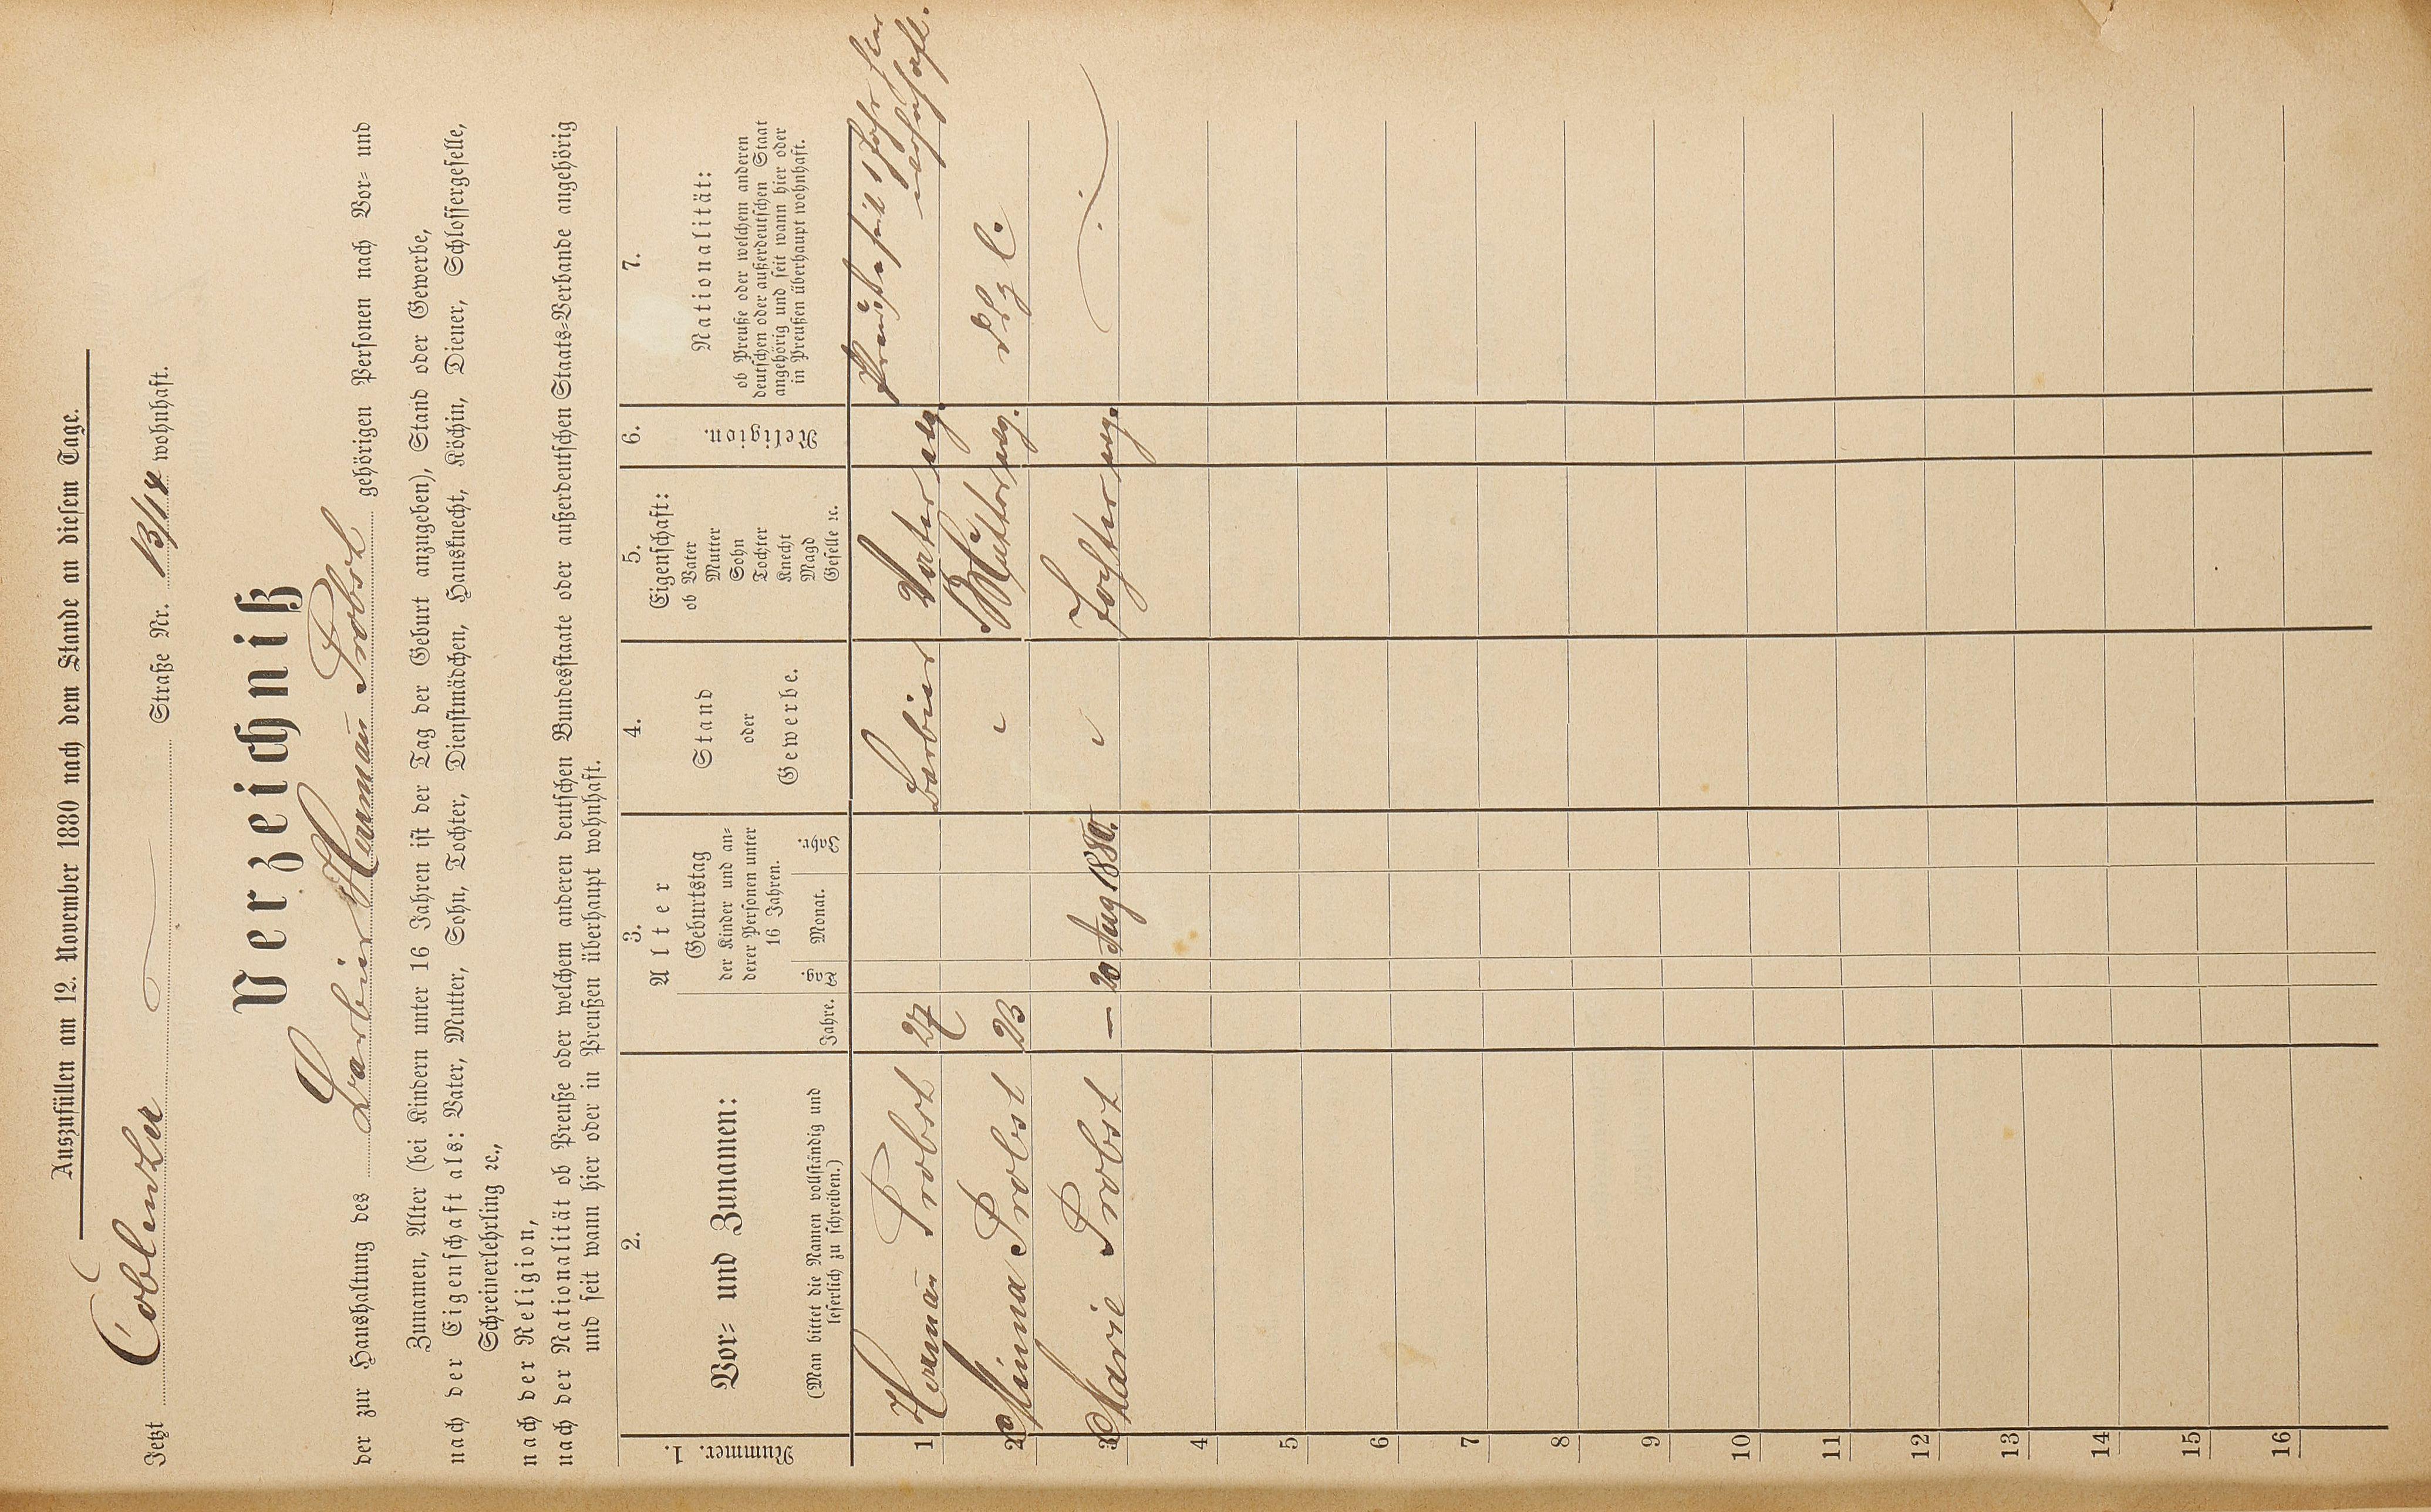 Auszufüllen am 12. November 1880 nach dem Stande an diesem Tage.
Jetzt Coblenzer Straße Nr. 13/14 wohnhaft.
Verzeichniß
der zur Haushaltung des Barbier Hermañ Probst gehörigen Personen nach Vor= und
Zunamen, Alter (bei Kindern unter 16 Jahren ist der Tag der Geburt anzugeben), Stand oder Gewerbe,
nach der Eigenschaft als: Vater, Mutter, Sohn, Tochter, Dienstmädchen, Hausknecht, Köchin, Diener, Schlossergeselle,
Schreinerlehrling ꝛc.,
nach der Religion,
nach der Nationalität ob Preuße oder welchem anderen deutschen Bundesstaate oder außerdeutschen Staats=Verbande angehörig
und seit wann hier oder in Preußen überhaupt wohnhaft.
1. 2. 3. 4. 5. 6. 7.
Nummer.
Vor= und Zunamen:
(Man bittet die Namen vollständig und
leserlich zu schreiben.)
Alter
Jahre.
Geburtstag
der Kinder und an=
derer Personen unter
16 Jahren.
Tag. Monat. Jahr.
Stand
oder
Gewerbe.
Eigenschaft:
ob Vater
Mutter
Sohn
Tochter
Knecht
Magd
Geselle ꝛc.
Religion.
Nationalität:
ob Preuße oder welchem anderen
deutschen oder außerdeutschen Staat
angehörig und seit wann hier oder
in Preußen überhaupt wohnhaft.
1 Hermañ Probst 27 Barbier Vater evg. Preuße seit 1 Jahr hier
wohnhaft.
2 Minna Probst 23 Mutter evg. dgl.
3 Marie Probst — 20 Aug 1880. Tochter evg.
4
5
6
7
8
9
10
11
12
13
14
15
16